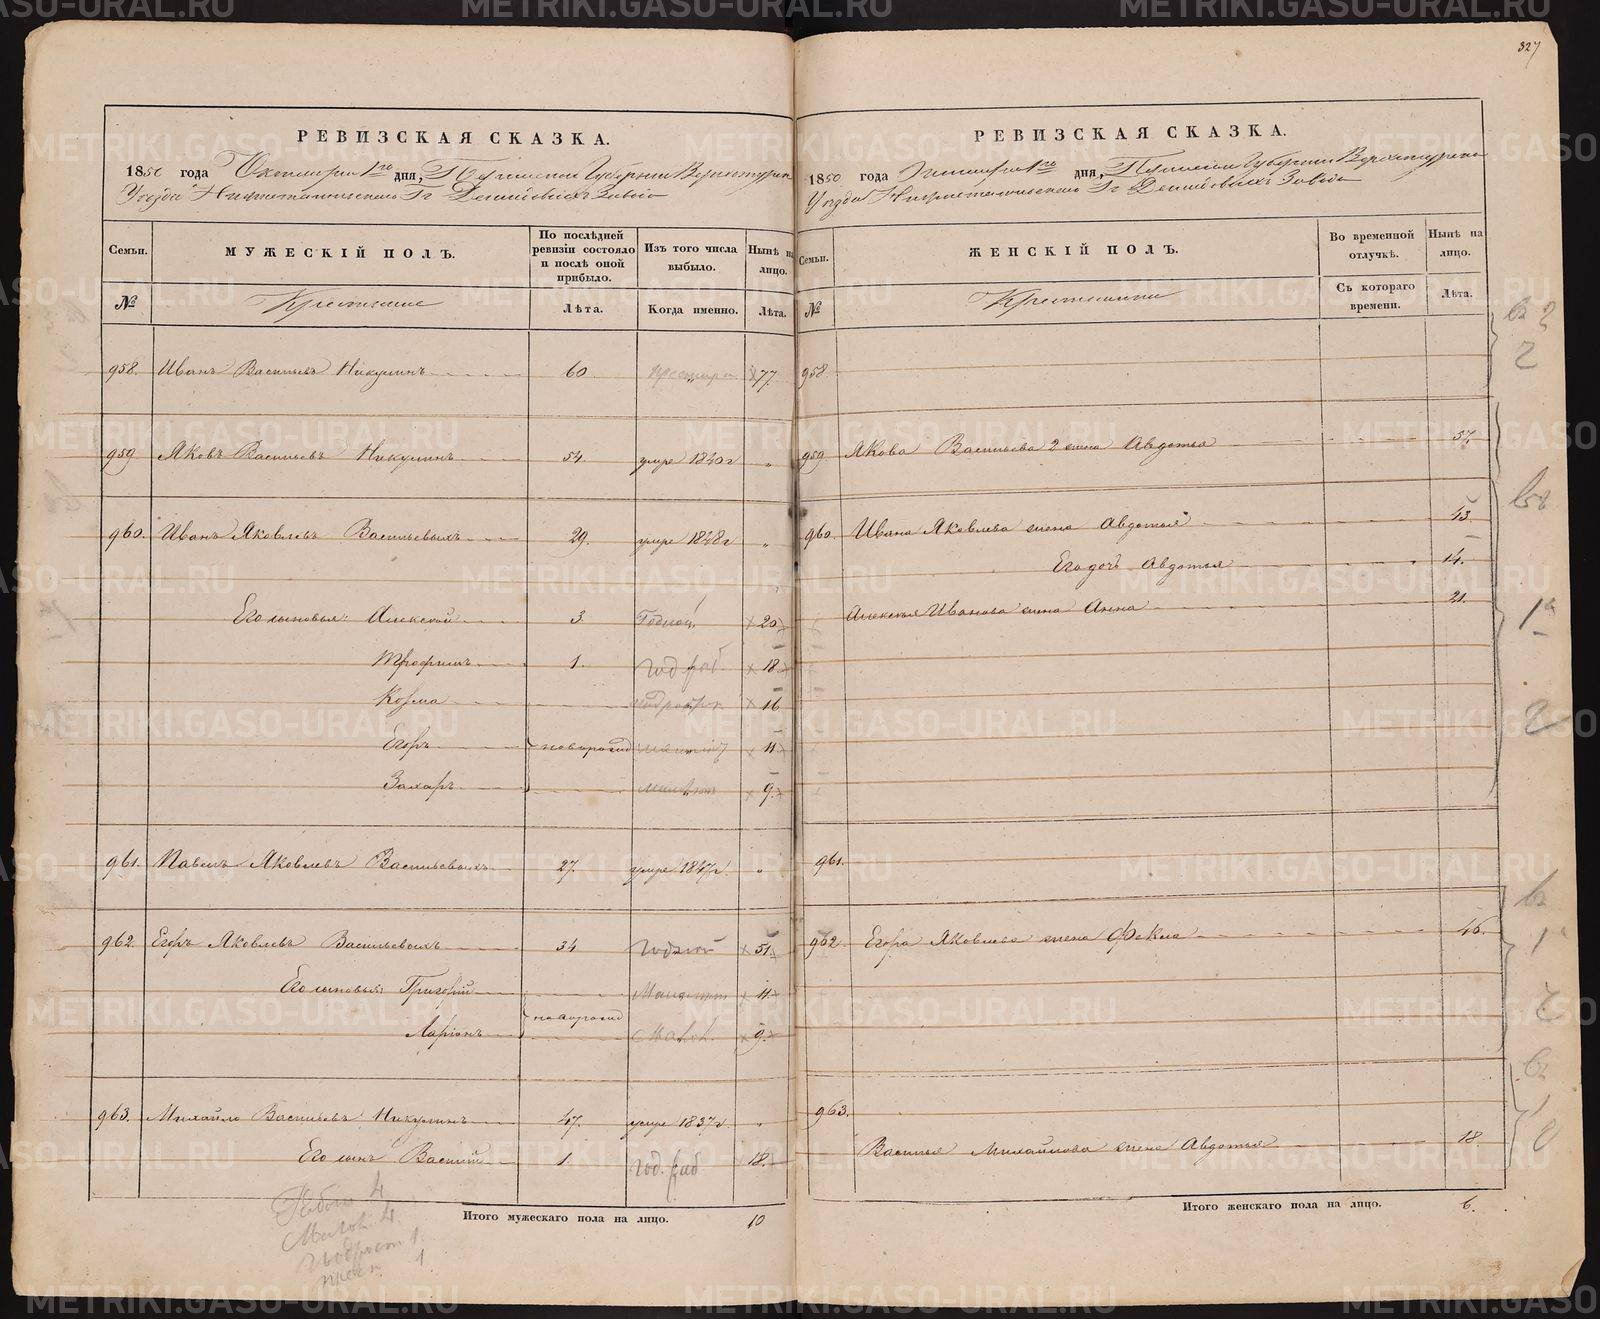 327
РЕВИЗСКАЯ СКАЗКА.
1850 года Октября 1го дня, Пермской Губернии Верхотурск
Уезда Нижнетагильского Гг Демидовых Завода
Семьи. МУЖЕСКІЙ ПОЛЪ. По послѣдней ревизіи состояло и послѣ оной прибыло. Изъ того числа выбыло. Нынѣ на лицо.
№ Крестьяне Лѣта. Когда именно. Лѣта.
958. Иванъ Васильевъ Никулинъ 60. 77.
959 Яковъ Васильевъ Никулинъ 54. умре 1840 г „
960. Иванъ Яковлевъ Васильевыхъ 29. умре 1848 г „
Его сыновья: Алексей 3. Годной 20
Трофимъ 1. год раб 18
Козма 16
Егоръ новорожд 11
Захаръ 9.
961. Павелъ Яковлевъ Васильевыхъ 27. умре 1847 г. „
962. Егоръ Яковлевъ Васильевыхъ 34 годной 51.
Его сыновья: Григорій 11.
Ларіонъ новорожд 9.
963. Михайло Васильевъ Никулинъ 47. умре 1837 г. „
Его сынъ Василий 1. год. раб 18.
Итого мужескаго пола на лицо. 10
Малол 4.
Подрост 1.
прест. 1
РЕВИЗСКАЯ СКАЗКА.
1850 года Октября 1го дня, Пермской Губернии Верхотурска
Уезда Нижнетагильского Гг Демидовыхъ Завода
Семьи. ЖЕНСКІЙ ПОЛЪ. Во временной отлучкѣ. Нынѣ на лицо.
№ Крестьянки Съ котораго времени. Лѣта.
958
959 Якова Васильева 2 жена Авдотья 57.
960. Ивана Яковлева жена Авдотья 43.
Его дочь Авдотья 14.
Алексея Иванова жена Анна 21.
961.
962. Егора Яковлева жена Фекла 46.
963.
Василья Михайлова жена Авдотья 18.
Итого женскаго пола на лицо. 6.
METRIKI.GASO-URAL.RU